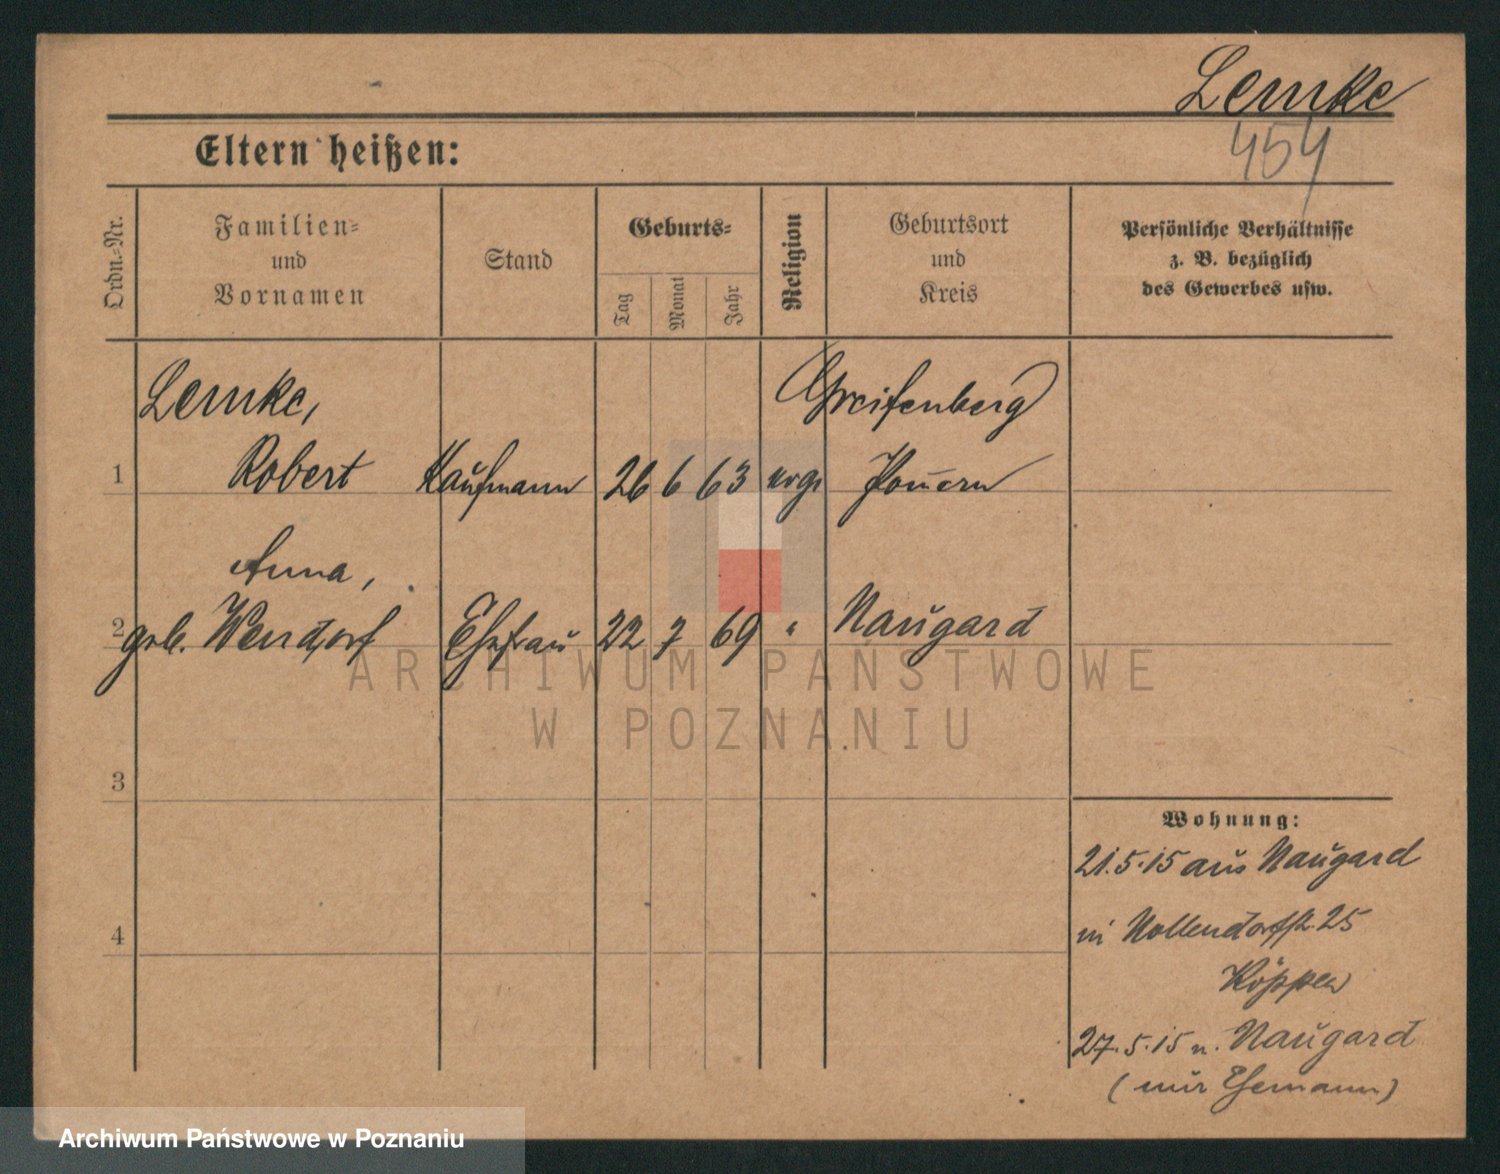 Lemke
454
Eltern heißen:
Ordn.-Nr.
Familien-
und
Vornamen
Stand
Geburts-
Tag
Monat
Jahr
Religion
Geburtsort
und
Kreis
Persönliche Verhältnisse
z. B. bezüglich
des Gewerbes usw.
Lemke,
Greifenberg
1 Robert Kaufmann 26 6 63 evgl Pom̄ern
Anna,
2 geb. Wendorf Ehefrau 22 7 69 " Naugard
ARCHIWUM PAŃSTWOWE
W POZNANIU
3
4
Wohnung:
21.5.15 aus Naugard
in Nollendorfstr. 25
Köppen
27.5.15 n. Naugard
(nur Ehemann)
Archiwum Państwowe w Poznaniu